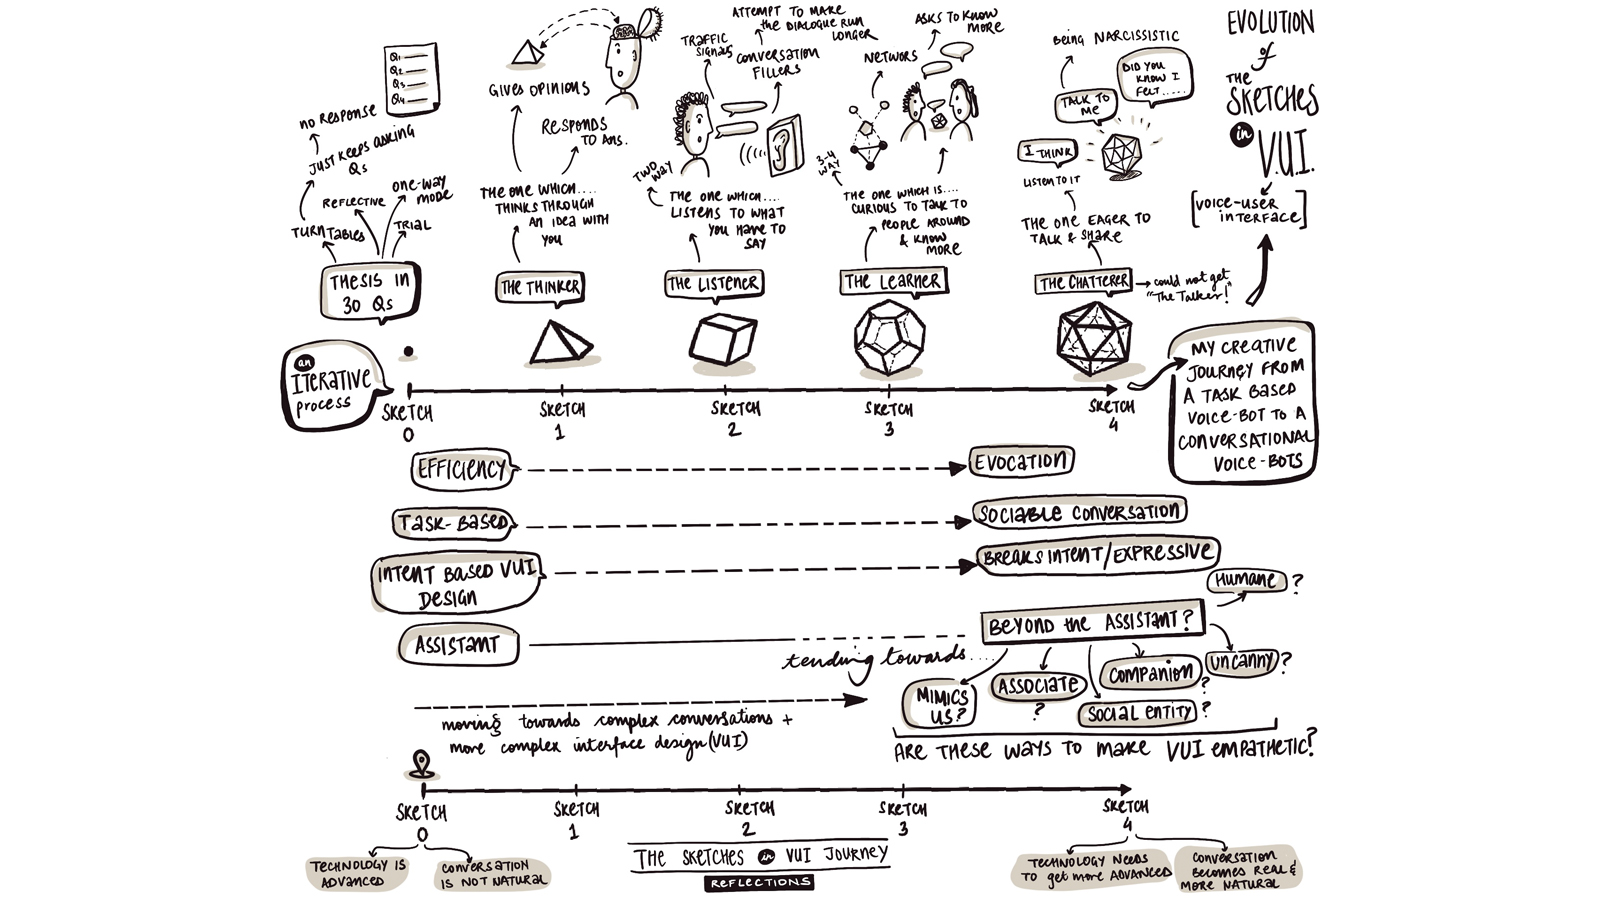 EVOLUTION
of
THE
SKETCHES
in
V.U.I.
[VOICE-USER
INTERFACE]
Q1
Q2
Q3
Q4
NO RESPONSE
JUST KEEPS ASKING
Qs
REFLECTIVE
ONE-WAY
MODE
TURNTABLES
TRIAL
THESIS IN
30 Qs
GIVES OPINIONS
RESPONDS
TO ANS.
THE ONE WHICH....
THINKS THROUGH
AN IDEA WITH
YOU
THE THINKER
ATTEMPT TO MAKE
the DIALOGUE RUN
LONGER
TRAFFIC
SIGNALS
CONVERSATION
FILLERS
TWO
WAY
THE ONE WHICH....
LISTENS TO WHAT
YOU HAVE TO
SAY
THE LISTENER
ASKS TO KNOW
MORE
NETWORKS
3-4
WAY
THE ONE WHICH IS....
CURIOUS TO TALK TO
PEOPLE AROUND
& KNOW
MORE
THE LEARNER
BEING NARCISSISTIC
DID YOU
KNOW I
FELT.....
TALK TO
ME
I THINK
LISTEN TO IT
THE ONE EAGER TO
TALK & SHARE
THE CHATTERER
could not get
"The Talker!"
an
ITERATIVE
process
SKETCH
0
SKETCH
1
SKETCH
2
SKETCH
3
SKETCH
4
MY CREATIVE
JOURNEY FROM
A TASK BASED
VOICE-BOT TO A
CONVERSATIONAL
VOICE-BOTS
EFFICIENCY
EVOCATION
TASK-BASED
SOCIABLE CONVERSATION
INTENT BASED VUI
DESIGN
BREAKS INTENT/EXPRESSIVE
ASSISTANT
tending towards....
BEYOND the ASSISTANT?
HUMANE?
UNCANNY?
COMPANION?
SOCIAL ENTITY?
ASSOCIATE
?
MIMICS
US?
ARE THESE WAYS TO MAKE VUI EMPATHETIC?
moving towards complex conversations +
more complex interface design (VUI)
SKETCH
0
SKETCH
1
SKETCH
2
SKETCH
3
SKETCH
4
TECHNOLOGY IS
ADVANCED
CONVERSATION
IS NOT NATURAL
THE SKETCHES in VUI JOURNEY
REFLECTIONS
TECHNOLOGY NEEDS
TO get more ADVANCED
CONVERSATION
BECOMES REAL &
MORE NATURAL